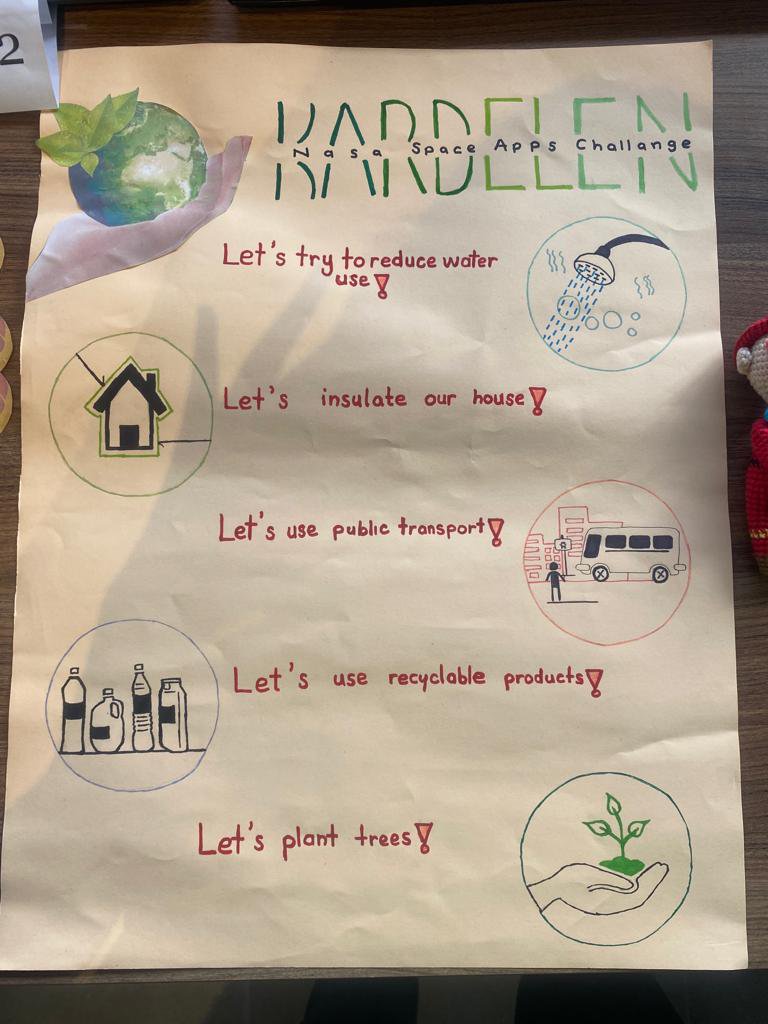 2
KARDELEN
Nasa Space Apps Challange
Let's try to reduce water
use!
Let's insulate our house!
Let's use public transport!
Let's use recyclable products!
Let's plant trees!